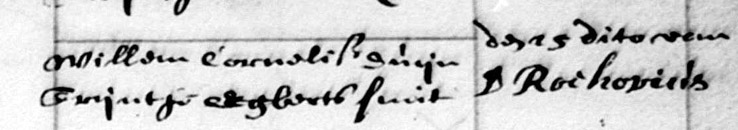 Willem Cornelisz duijn
Trijntje Egberts smit
den 25 dito van
D Rochovius